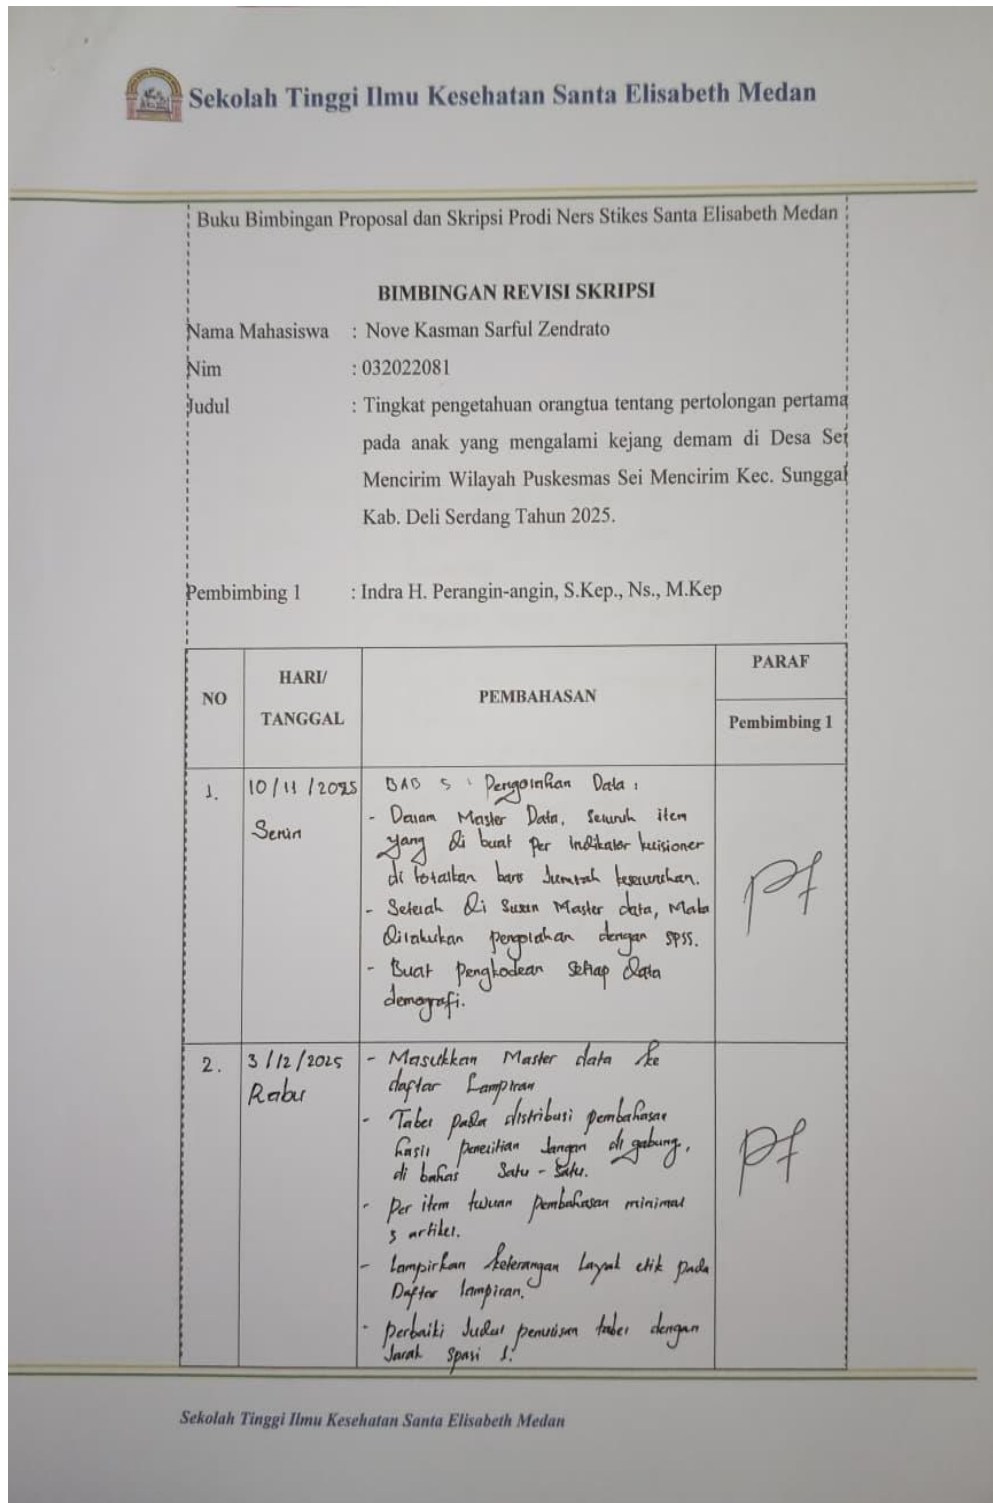 Sekolah Tinggi Ilmu Kesehatan Santa Elisabeth Medan
Buku Bimbingan Proposal dan Skripsi Prodi Ners Stikes Santa Elisabeth Medan
BIMBINGAN REVISI SKRIPSI
Nama Mahasiswa : Nove Kasman Sarful Zendrato
Nim : 032022081
Judul : Tingkat pengetahuan orangtua tentang pertolongan pertama
pada anak yang mengalami kejang demam di Desa Sei
Mencirim Wilayah Puskesmas Sei Mencirim Kec. Sunggal
Kab. Deli Serdang Tahun 2025.
Pembimbing 1 : Indra H. Perangin-angin, S.Kep., Ns., M.Kep
NO
HARI/
TANGGAL
PEMBAHASAN
PARAF
Pembimbing 1
1.
10/11/2025
Senin
BAB 5 : Pengolahan Data :
- Dalam Master Data, seluruh item
yang di buat per Indikator kuisioner
di totalkan baru Jumlah keseluruhan.
- Setelah di Susun Master data, Maka
dilakukan pengolahan dengan SPSS.
- Buat pengkodean setiap data
demografi.
2.
3/12/2025
Rabu
- Masukkan Master data ke
daftar Lampiran
- Tabel pada distribusi pembahasan
hasil penelitian Jangan di gabung,
di bahas Satu - Satu.
- Per item tujuan pembahasan minimal
3 artikel.
- Lampirkan keterangan Layak etik pada
Daftar lampiran.
- perbaiki Judul penulisan tabel dengan
Jarak spasi 1.
Sekolah Tinggi Ilmu Kesehatan Santa Elisabeth Medan